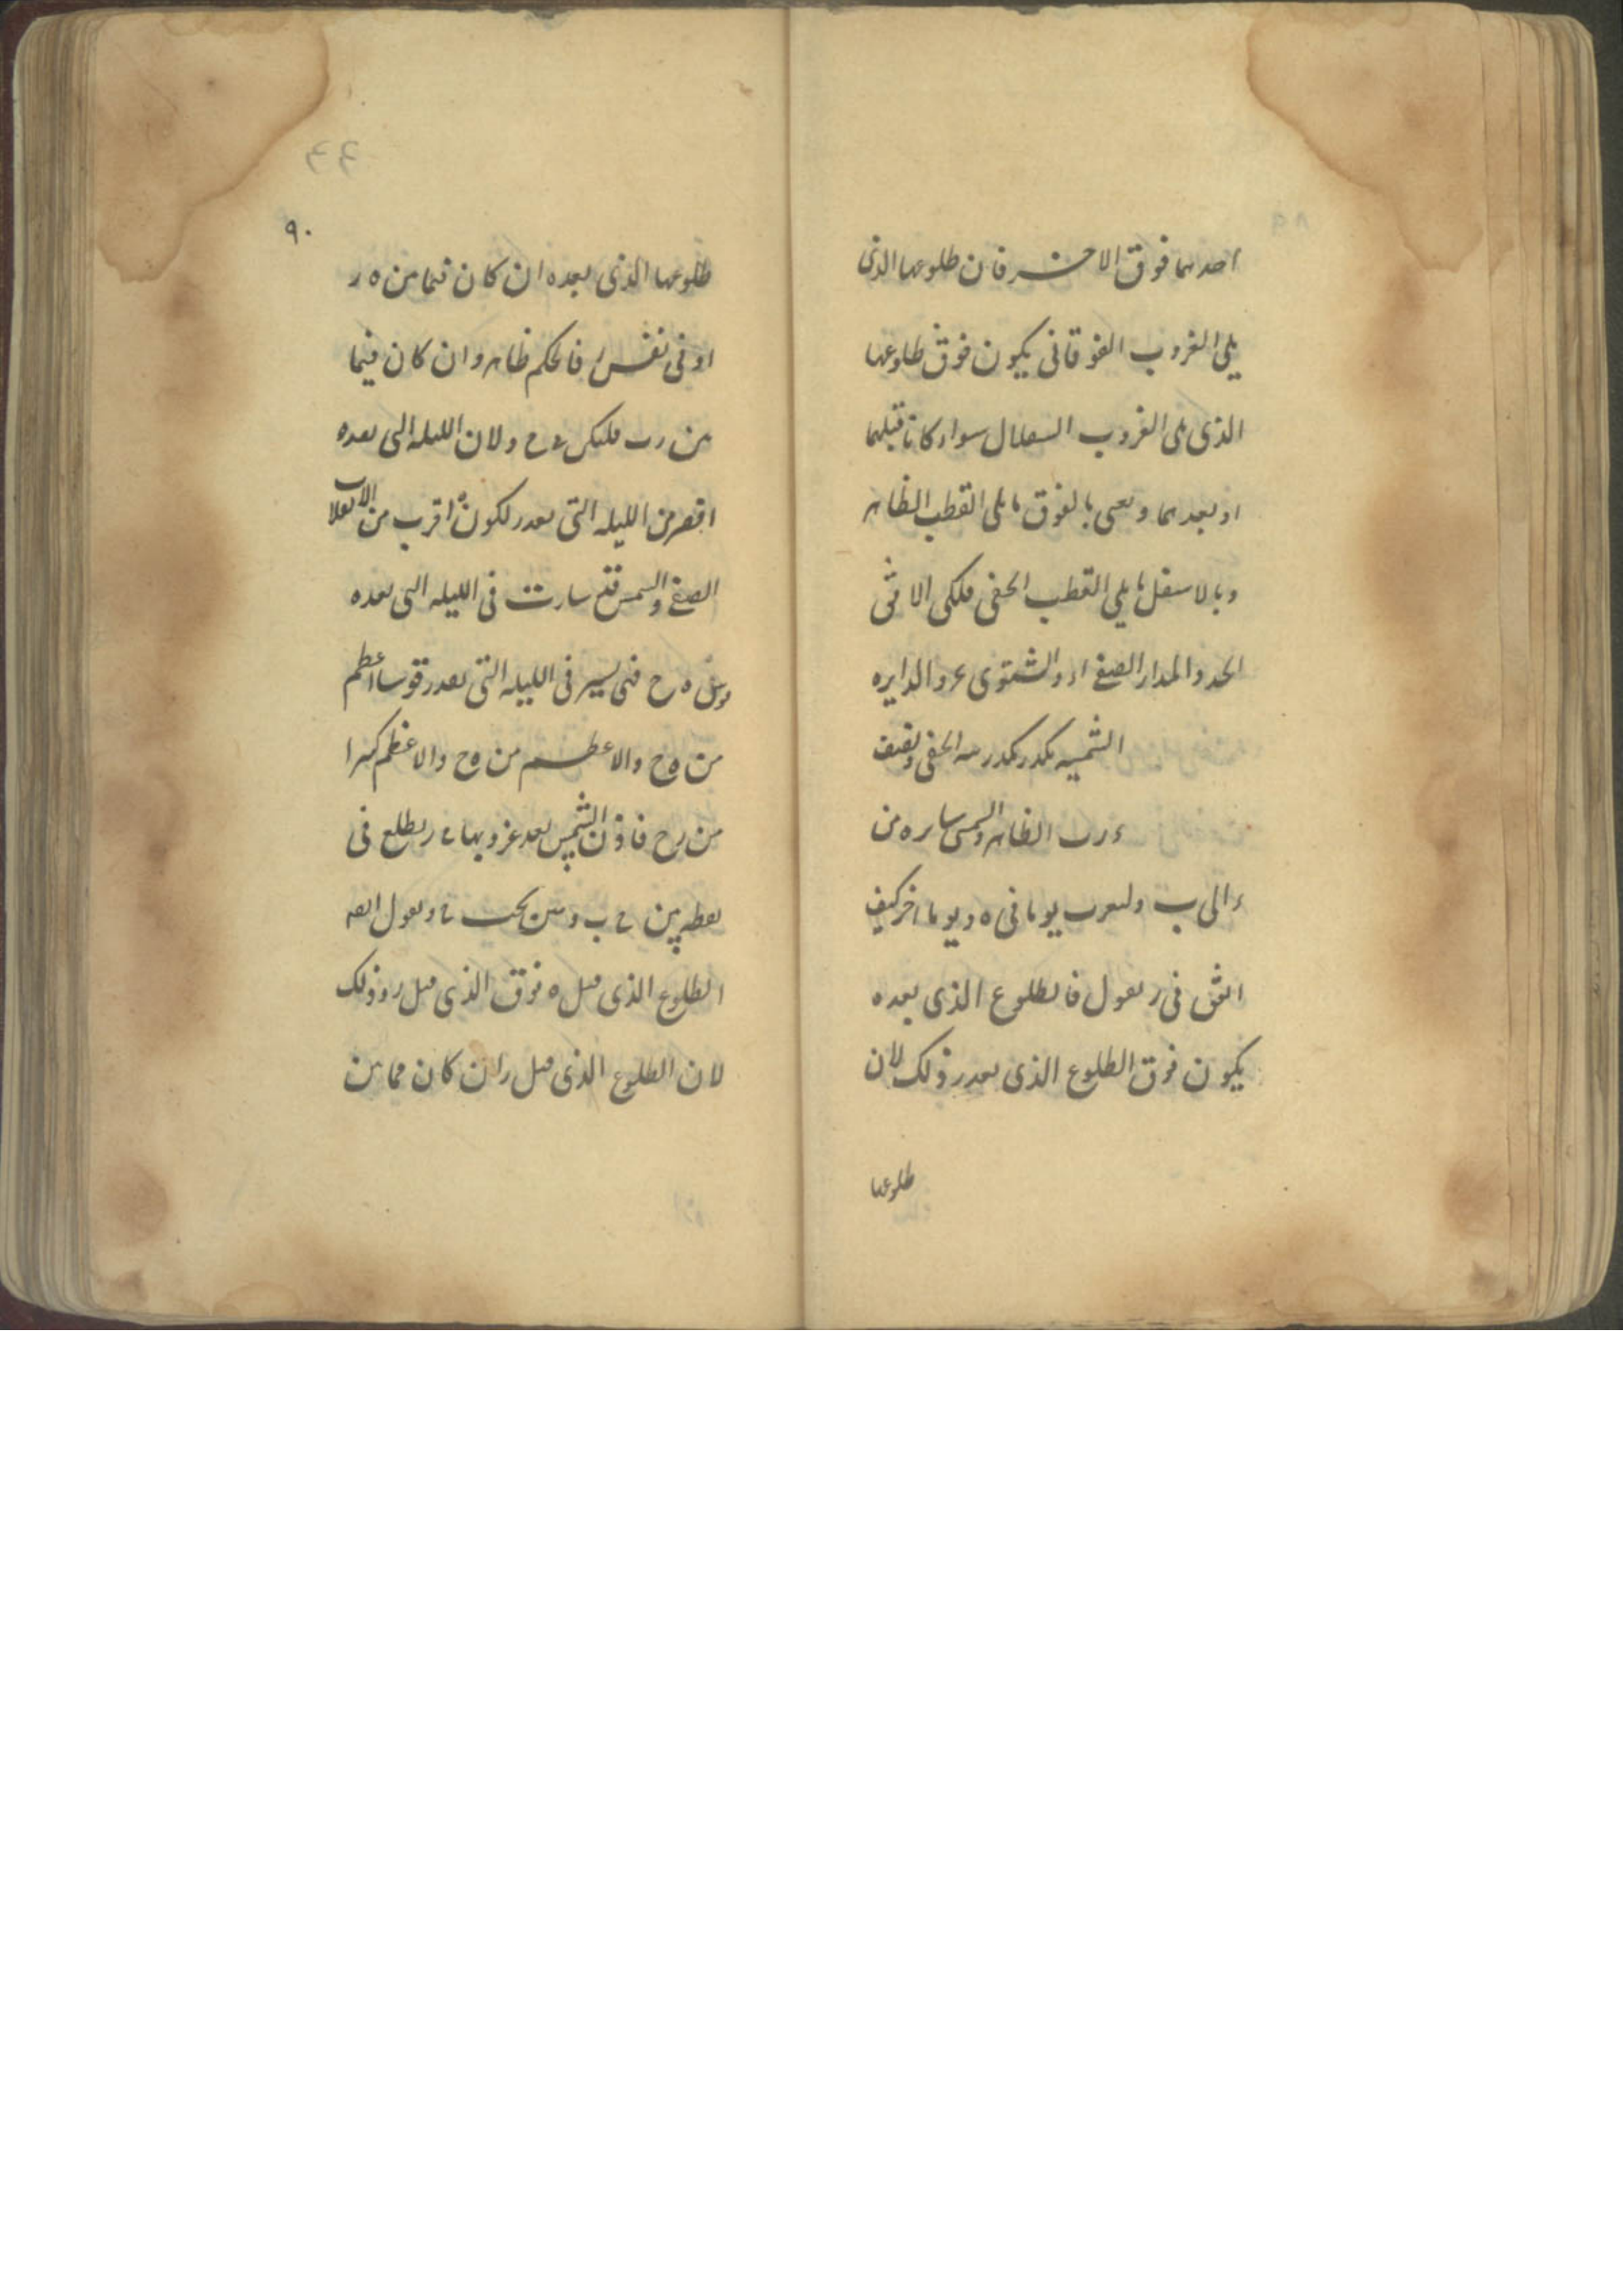 احدهما فوق الاخر فان طلوعها الذى
يلى الغروب الفوقانى يكون فوق طلوعها
الذى يلى الغروب السفلانى سواء كانا قبلهما
او بعدهما ونعنى بالفوق ما يلى القطب الظاهر
وبالاسفل ما يلى القطب الخفى فليكن الافق
ا ح د والمدار الصيفى ا ر والشتوى والدايره
الشمسيه الخفى ونصف
ء ر ب الظاهر والشمس سايره من
ء الى ب ولتغرب يوما فى ه ويوما اخر كيف
اتفق فى ر نقول فالطلوع الذى بعد ه
يكون فوق الطلوع الذى بعد ر وذلك لان
طلوعها
٩٠
طلوعها الذى بعد ه ان كان فيما بين ه ر
او فى نفس ر فالحكم ظاهر وان كان فيما
بين ر ب فليكن ح ولان الليله التى بعد ه
اقصر من الليله التى بعد ر لكون ه اقرب من الانقلاب
الصيفى والشمس قد سارت فى الليله التى بعد ه
قوس ه ح فهى تسير فى الليله التى بعد ر قوسا اعظم
من ه ح والاعظم من ه ح والاعظم كثيرا
من ر ح فاذن الشمس بعد غروبها فى ر يطلع فى
نقطه بين ح ب وهى تحت ح ونقول ايضا
الطلوع الذى قبل ه فوق الذى قبل ر وذلك
لان الطلوع الذى قبل ر ان كان مما بين